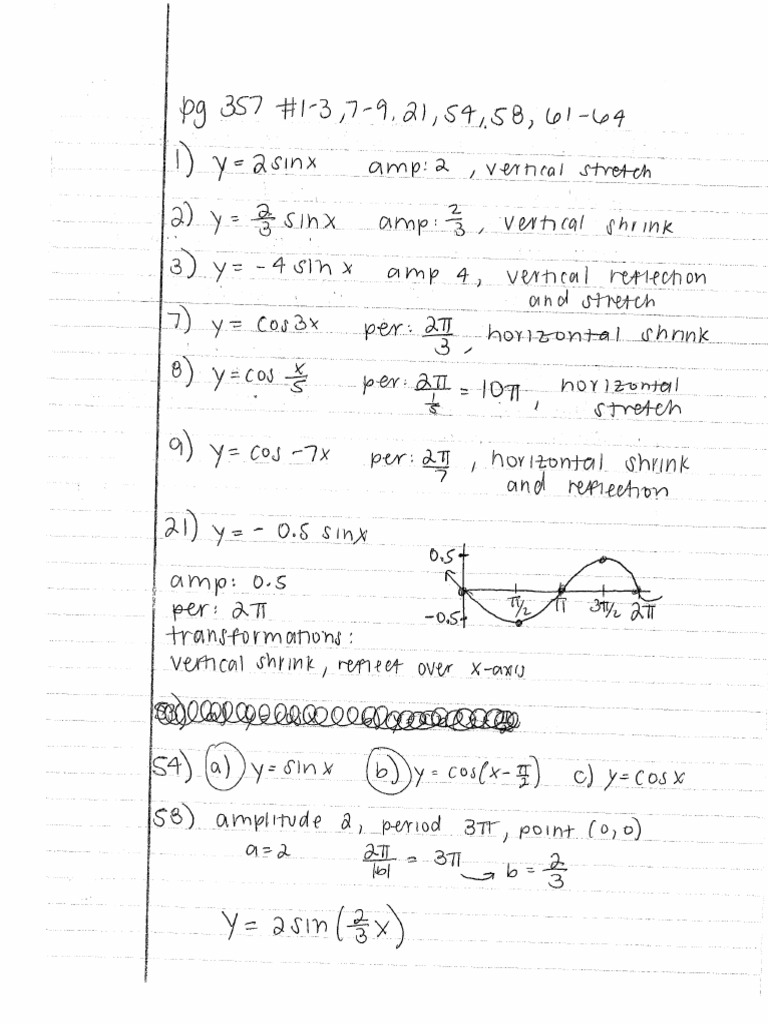 pg 357 #1-3, 7-9, 21, 54, 58, 61-64
1) y = 2 sin x amp: 2, vertical stretch
2) y = 2/3 sin x amp: 2/3, vertical shrink
3) y = -4 sin x amp 4, vertical reflection
and stretch
7) y = cos 3x per: 2π/3, horizontal shrink
8) y = cos x/5 per: 2π/(1/5) = 10π, horizontal
stretch
9) y = cos -7x per: 2π/7, horizontal shrink
and reflection
21) y = - 0.5 sin x
0.5
-0.5
π/2 π 3π/2 2π
amp: 0.5
per: 2π
transformations:
vertical shrink, reflect over x-axis
54) a) y = sin x b) y = cos(x - π/2) c) y = cos x
58) amplitude 2, period 3π, point (0,0)
a = 2 2π/|b| = 3π → b = 2/3
y = 2 sin (2/3 x)